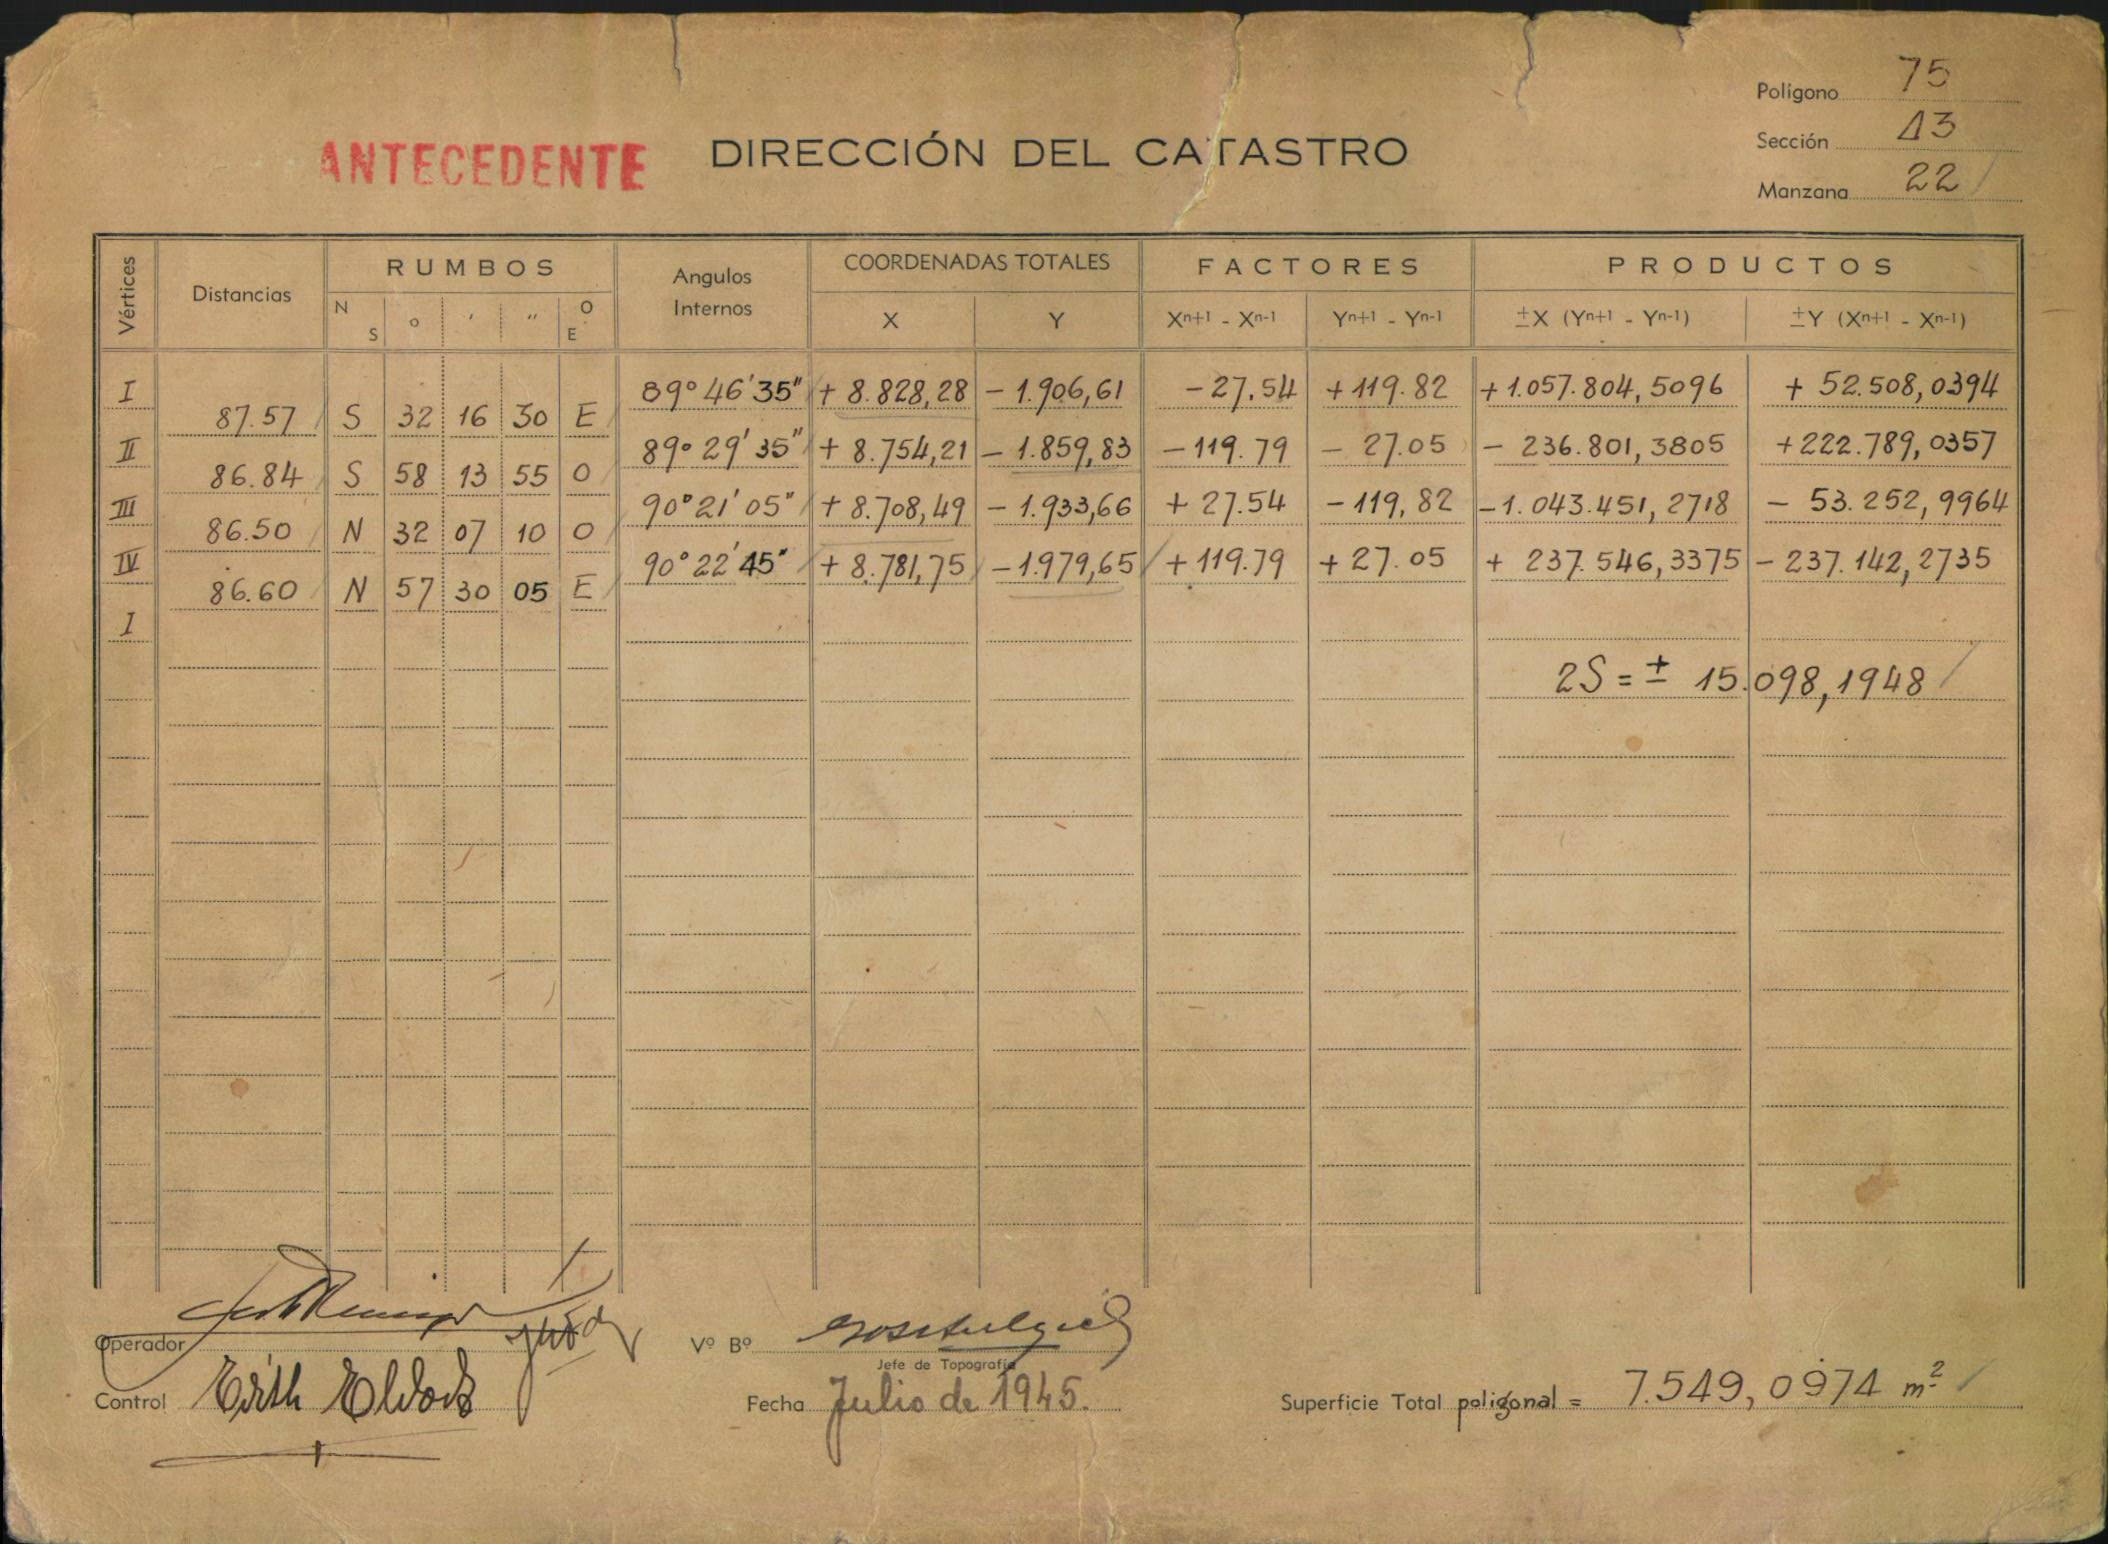 Polígono 75
ANTECEDENTE DIRECCIÓN DEL CATASTRO
Sección 13
Manzana 22
Vértices Distancias RUMBOS Angulos Internos COORDENADAS TOTALES FACTORES PRODUCTOS
N S ° ' '' O E X Y Xn+1 - Xn-1 Yn+1 - Yn-1 ±X (Yn+1 - Yn-1) ±Y (Xn+1 - Xn-1)
I 89° 46' 35" + 8.828,28 - 1.906,61 - 27.54 + 119.82 + 1.057.804,5096 + 52.508,0394
87.57 S 32 16 30 E
II 89° 29' 35" + 8.754,21 - 1.859,83 - 119.79 - 27.05 - 236.801,3805 + 222.789,0357
86.84 S 58 13 55 O
III 90° 21' 05" + 8.708,49 - 1.933,66 + 27.54 - 119,82 - 1.043.451,2718 - 53.252,9964
86.50 N 32 07 10 O
IV 90° 22' 45" + 8.781,75 - 1.979,65 + 119.79 + 27.05 + 237.546,3375 - 237.142,2735
86.60 N 57 30 05 E
I
2S = ± 15.098,1948
Operador
Vº Bº
Jefe de Topografía
Control
Fecha Julio de 1945.
Superficie Total poligonal = 7.549,0974 m²